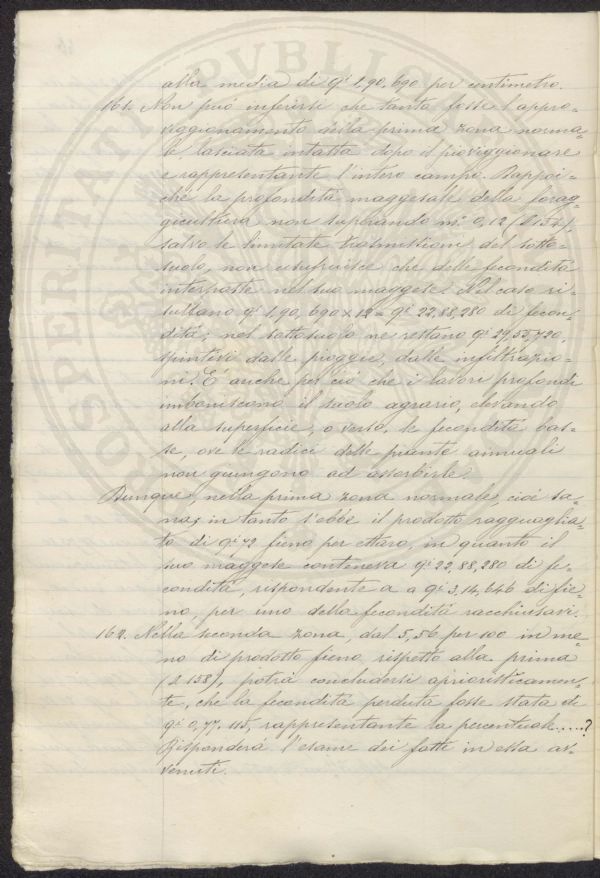 alla media di q.i 1,90,690 per centimetro.
161. Non può inferirsi che tanta fosse l'appro-
viggionamento della prima zona norma-
le lasciata intatta dopo il pioveggionare
e rappresentante l'intero campo. Dappoi-
chè la profondità maggesale della forag-
gicultura non superando m. 0,12 (§ 154),
salvo le limitate trasmissioni del sotto-
suolo, non usufruisce che delle fecondità
interposte nel suo maggese. Nel caso ri-
sultano q.i 1,90,690 x 12 = q.i 22,88,280 di fecon-
dità; nel sottosuolo ne restano q.i 29,55,720,
spintevi dalle pioggie, dalle infiltrazio-
ni. È anche per ciò che i lavori profondi
imboniscono il suolo agrario, elevando
alla superficie, o verso, le fecondità bas-
se, ove le radici delle piante annuali
non giungono ad assorbirle.
Dunque, nella prima zona normale, cioè sa-
na, in tanto s'ebbe il prodotto ragguaglia-
to di q.i 72 fieno per ettaro, in quanto il
suo maggese conteneva q.i 22,88,280 di fe-
condità, rispondente a a q.i 3,14,646 di fie-
no, per uno della fecondità racchiusavi.
162. Nella seconda zona, dal 5,56 per 100 in me-
no di prodotto fieno, rispetto alla prima
(§ 158), potrà concludersi aprioristicamen-
te, che la fecondità perduta fosse stata di
q.i 0,77.115, rappresentante la percentuale.....?
Risponderà l'esame dei fatti in essa av-
venuti.
PVBLICA
PROSPERITATI